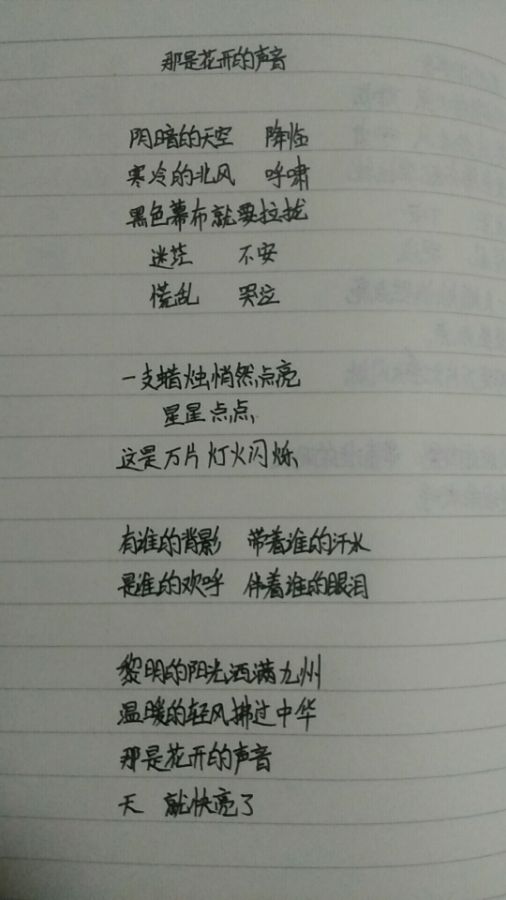 那是花开的声音
阴暗的天空 降临
寒冷的北风 呼啸
黑色幕布就要拉拢
迷茫 不安
慌乱 哭泣
一支蜡烛悄然点亮
星星点点
这是万片灯火闪烁
有谁的背影 带着谁的汗水
是谁的欢呼 伴着谁的眼泪
黎明的阳光洒满九州
温暖的轻风拂过中华
那是花开的声音
天 就快亮了